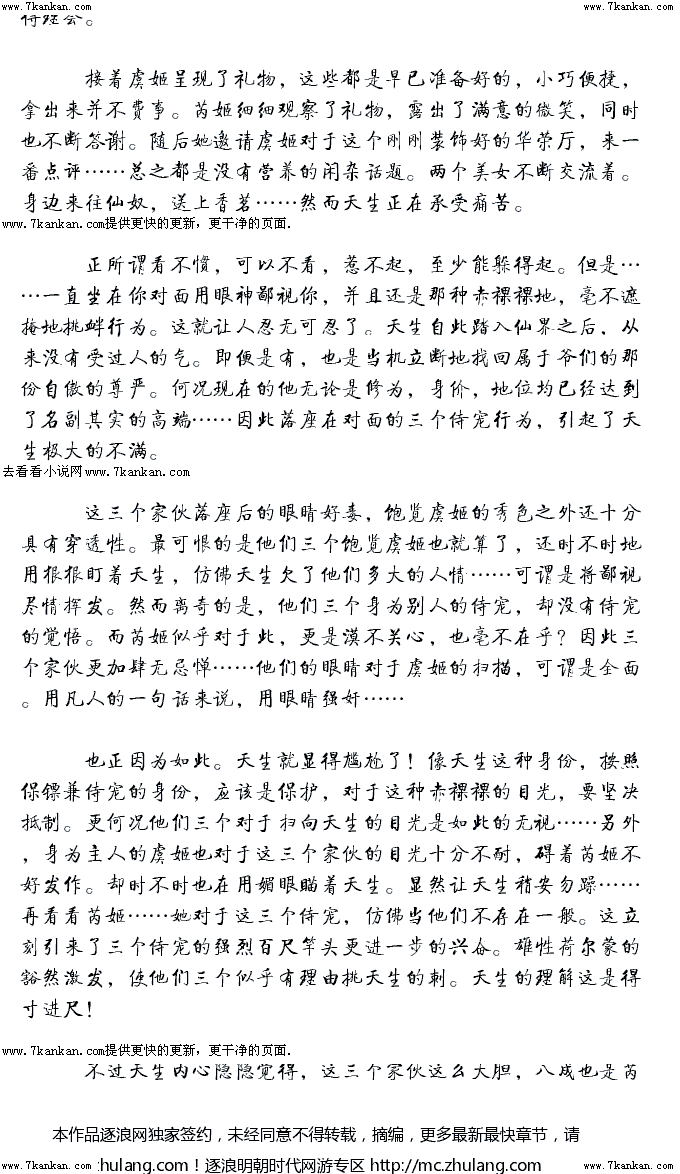 www.7kankan.com www.7kankan.com
接着虞姬呈现了礼物，这些都是早已准备好的，小巧便捷，
拿出来并不费事。芮姬细细观察了礼物，露出了满意的微笑，同时
也不断答谢。随后她邀请虞姬对于这个刚刚装饰好的华荣厅，来一
番点评……总之都是没有营养的闲杂话题。两个美女不断交流着。
身边来往仙奴，送上香茗……然而天生正在承受痛苦。
www.7kankan.com提供更快的更新，更干净的页面.
正所谓看不惯，可以不看，惹不起，至少能躲得起。但是…
…一直坐在你对面用眼神鄙视你，并且还是那种赤裸裸地，毫不遮
掩地挑衅行为。这就让人忍无可忍了。天生自此踏入仙界之后，从
来没有受过人的气。即便是有，也是当机立断地找回属于爷们的那
份自傲的尊严。何况现在的他无论是修为，身价，地位均已经达到
了名副其实的高端……因此落座在对面的三个侍宠行为，引起了天
生极大的不满。
去看看小说网www.7kankan.com
这三个家伙落座后的眼睛好毒，饱览虞姬的秀色之外还十分
具有穿透性。最可恨的是他们三个饱览虞姬也就算了，还时不时地
用狠狠盯着天生，仿佛天生欠了他们多大的人情……可谓是将鄙视
尽情挥发。然而离奇的是，他们三个身为别人的侍宠，却没有侍宠
的觉悟。而芮姬似乎对于此，更是漠不关心，也毫不在乎？因此三
个家伙更加肆无忌惮……他们的眼睛对于虞姬的扫描，可谓是全面
。用凡人的一句话来说，用眼睛强奸……
也正因为如此。天生就显得尴尬了！像天生这种身份，按照
保镖兼侍宠的身份，应该是保护，对于这种赤裸裸的目光，要坚决
抵制。更何况他们三个对于扫向天生的目光是如此的无视……另外
，身为主人的虞姬也对于这三个家伙的目光十分不耐，碍着芮姬不
好发作。却时不时也在用媚眼瞄着天生。显然让天生稍安勿躁……
再看看芮姬……她对于这三个侍宠，仿佛当他们不存在一般。这立
刻引来了三个侍宠的强烈百尺竿头更进一步的兴奋。雄性荷尔蒙的
豁然激发，使他们三个似乎有理由挑天生的刺。天生的理解这是得
寸进尺！
www.7kankan.com提供更快的更新，更干净的页面.
不过天生内心隐隐觉得，这三个家伙这么大胆，八成也是芮
本作品逐浪网独家签约，未经同意不得转载，摘编，更多最新最快章节，请
www.7kankan.com zhulang.com！逐浪明朝时代网游专区 http://mc.zhulang.com www.7kankan.com